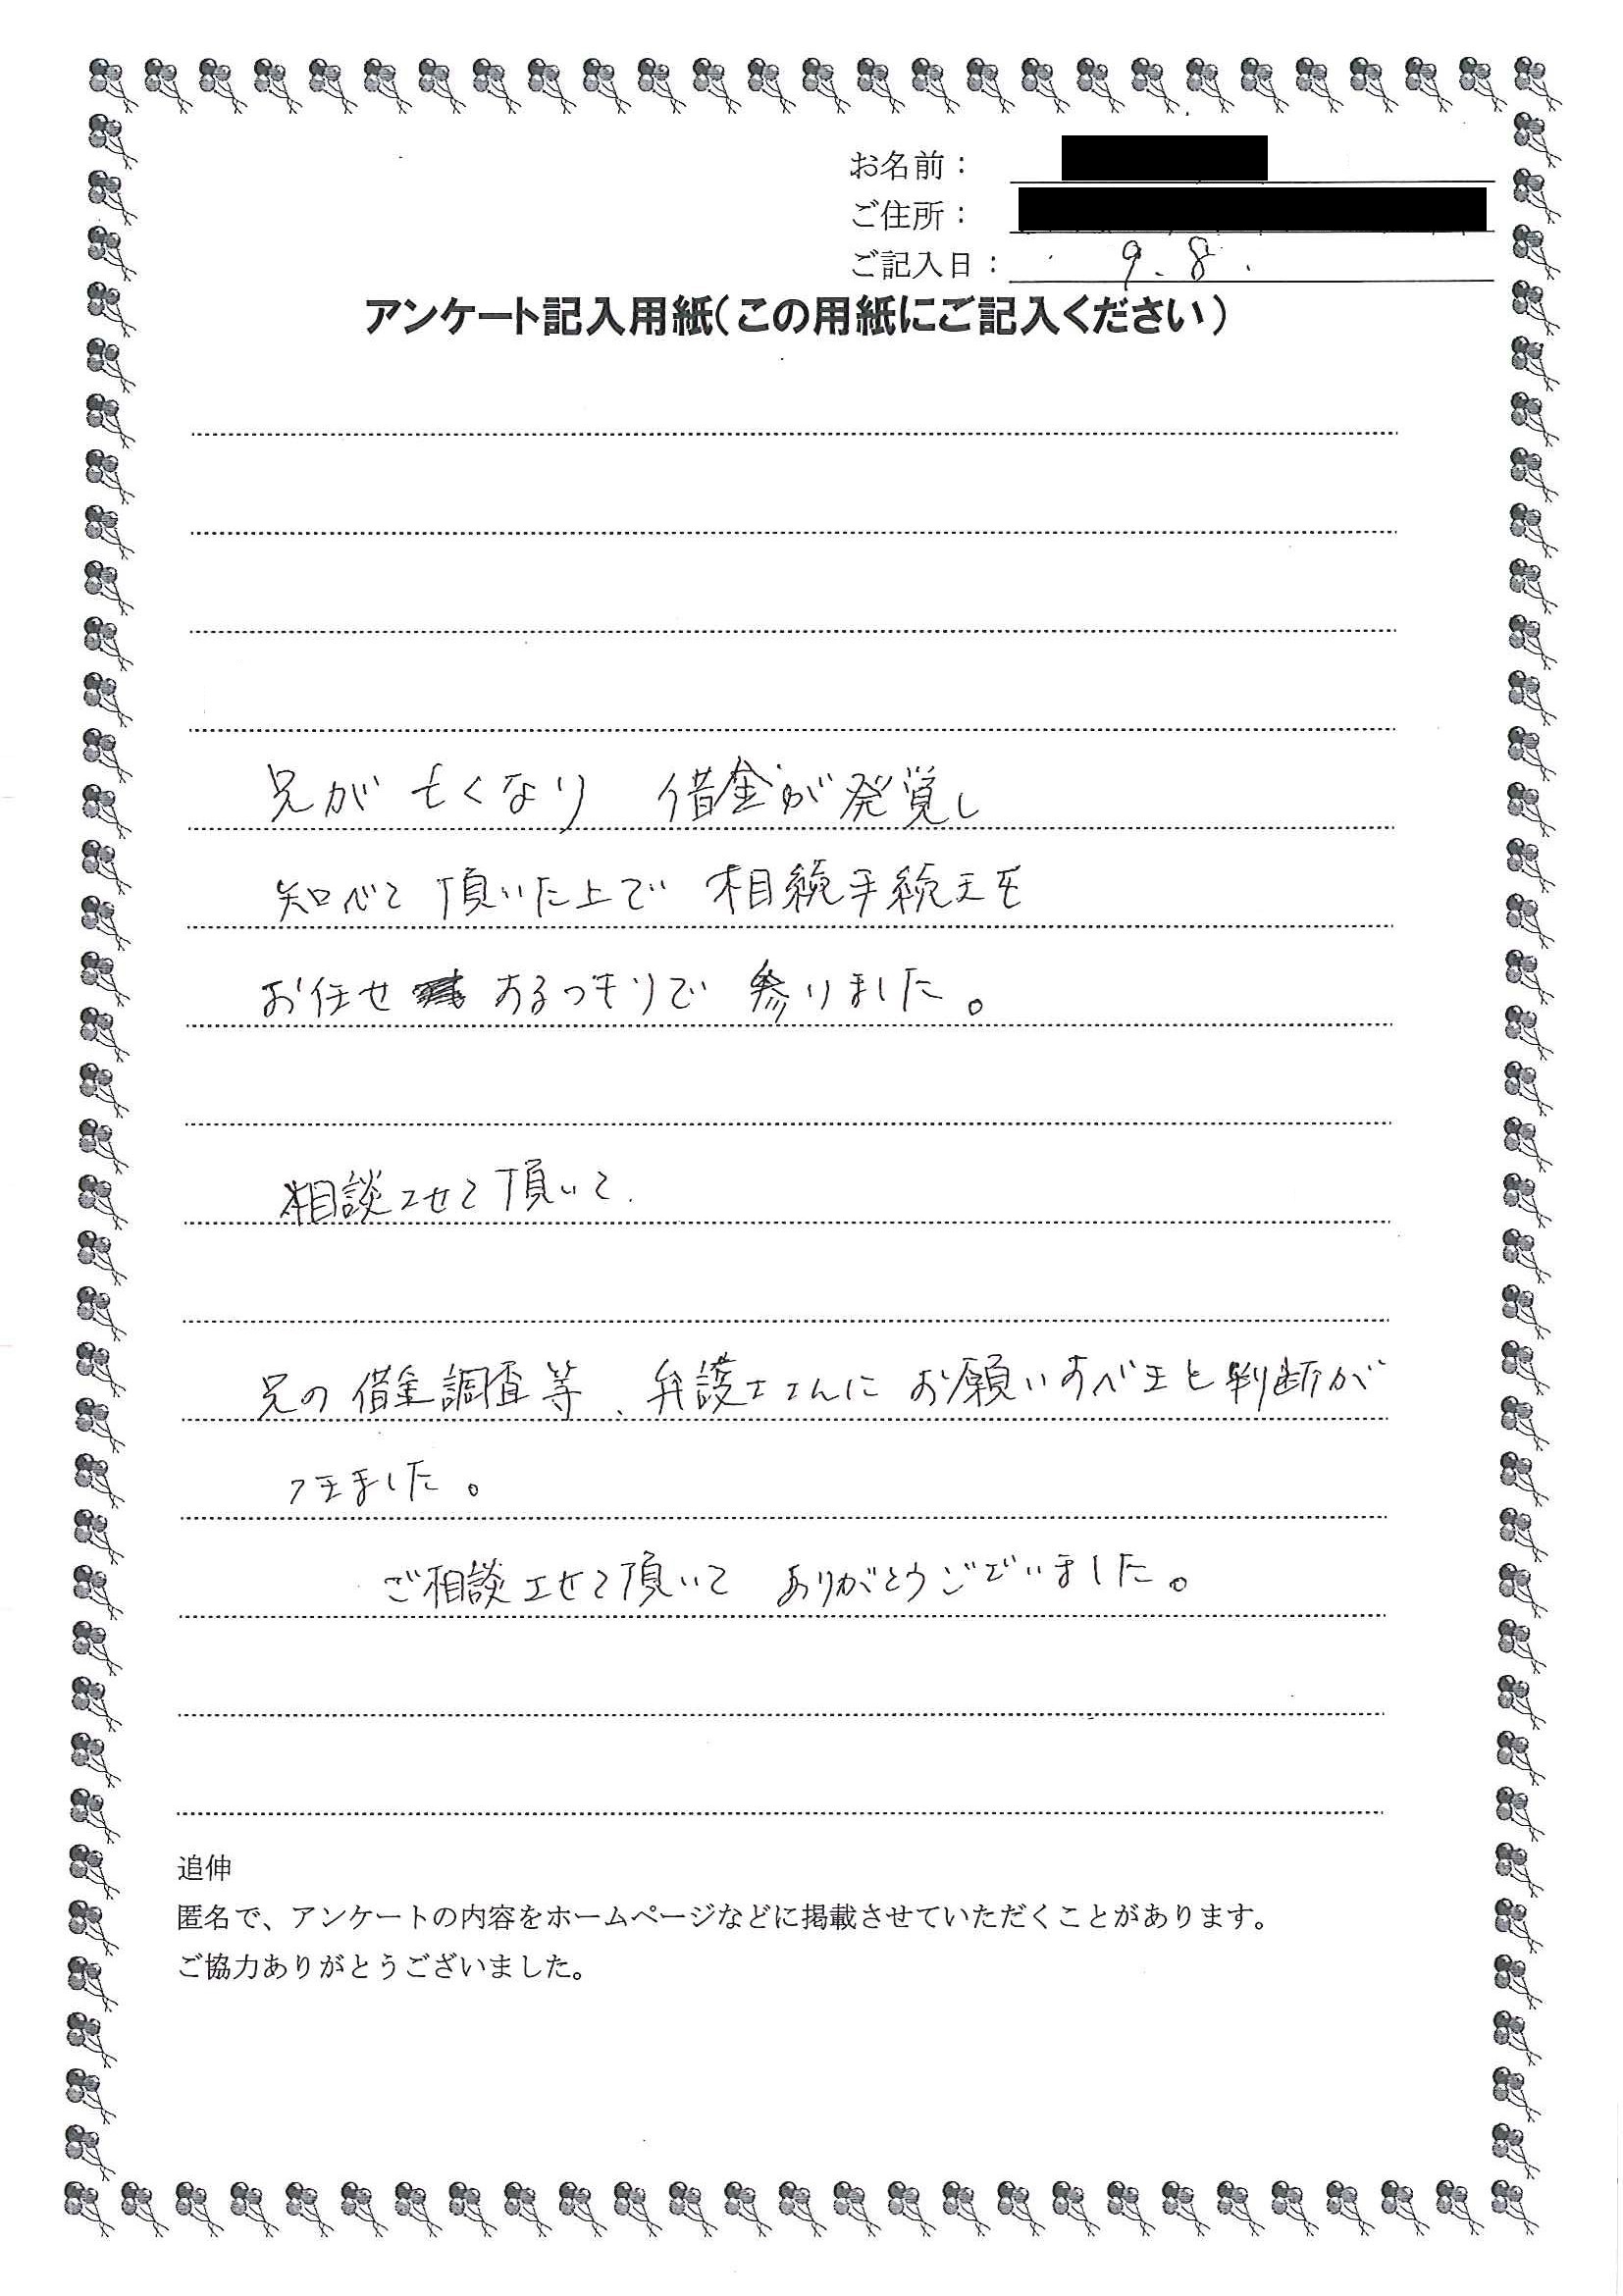 お名前：
ご住所：
ご記入日： 9.8.
アンケート記入用紙（この用紙にご記入ください）
兄が亡くなり 借金が発覚し
知べて頂いた上で 相続手続きを
お任せ するつもりで 参りました。
相談させて頂いて、
兄の借金調査等、弁護士さんにお願いすべきと判断が
つきました。
ご相談させて頂いて ありがとうございました。
追伸
匿名で、アンケートの内容をホームページなどに掲載させていただくことがあります。
ご協力ありがとうございました。